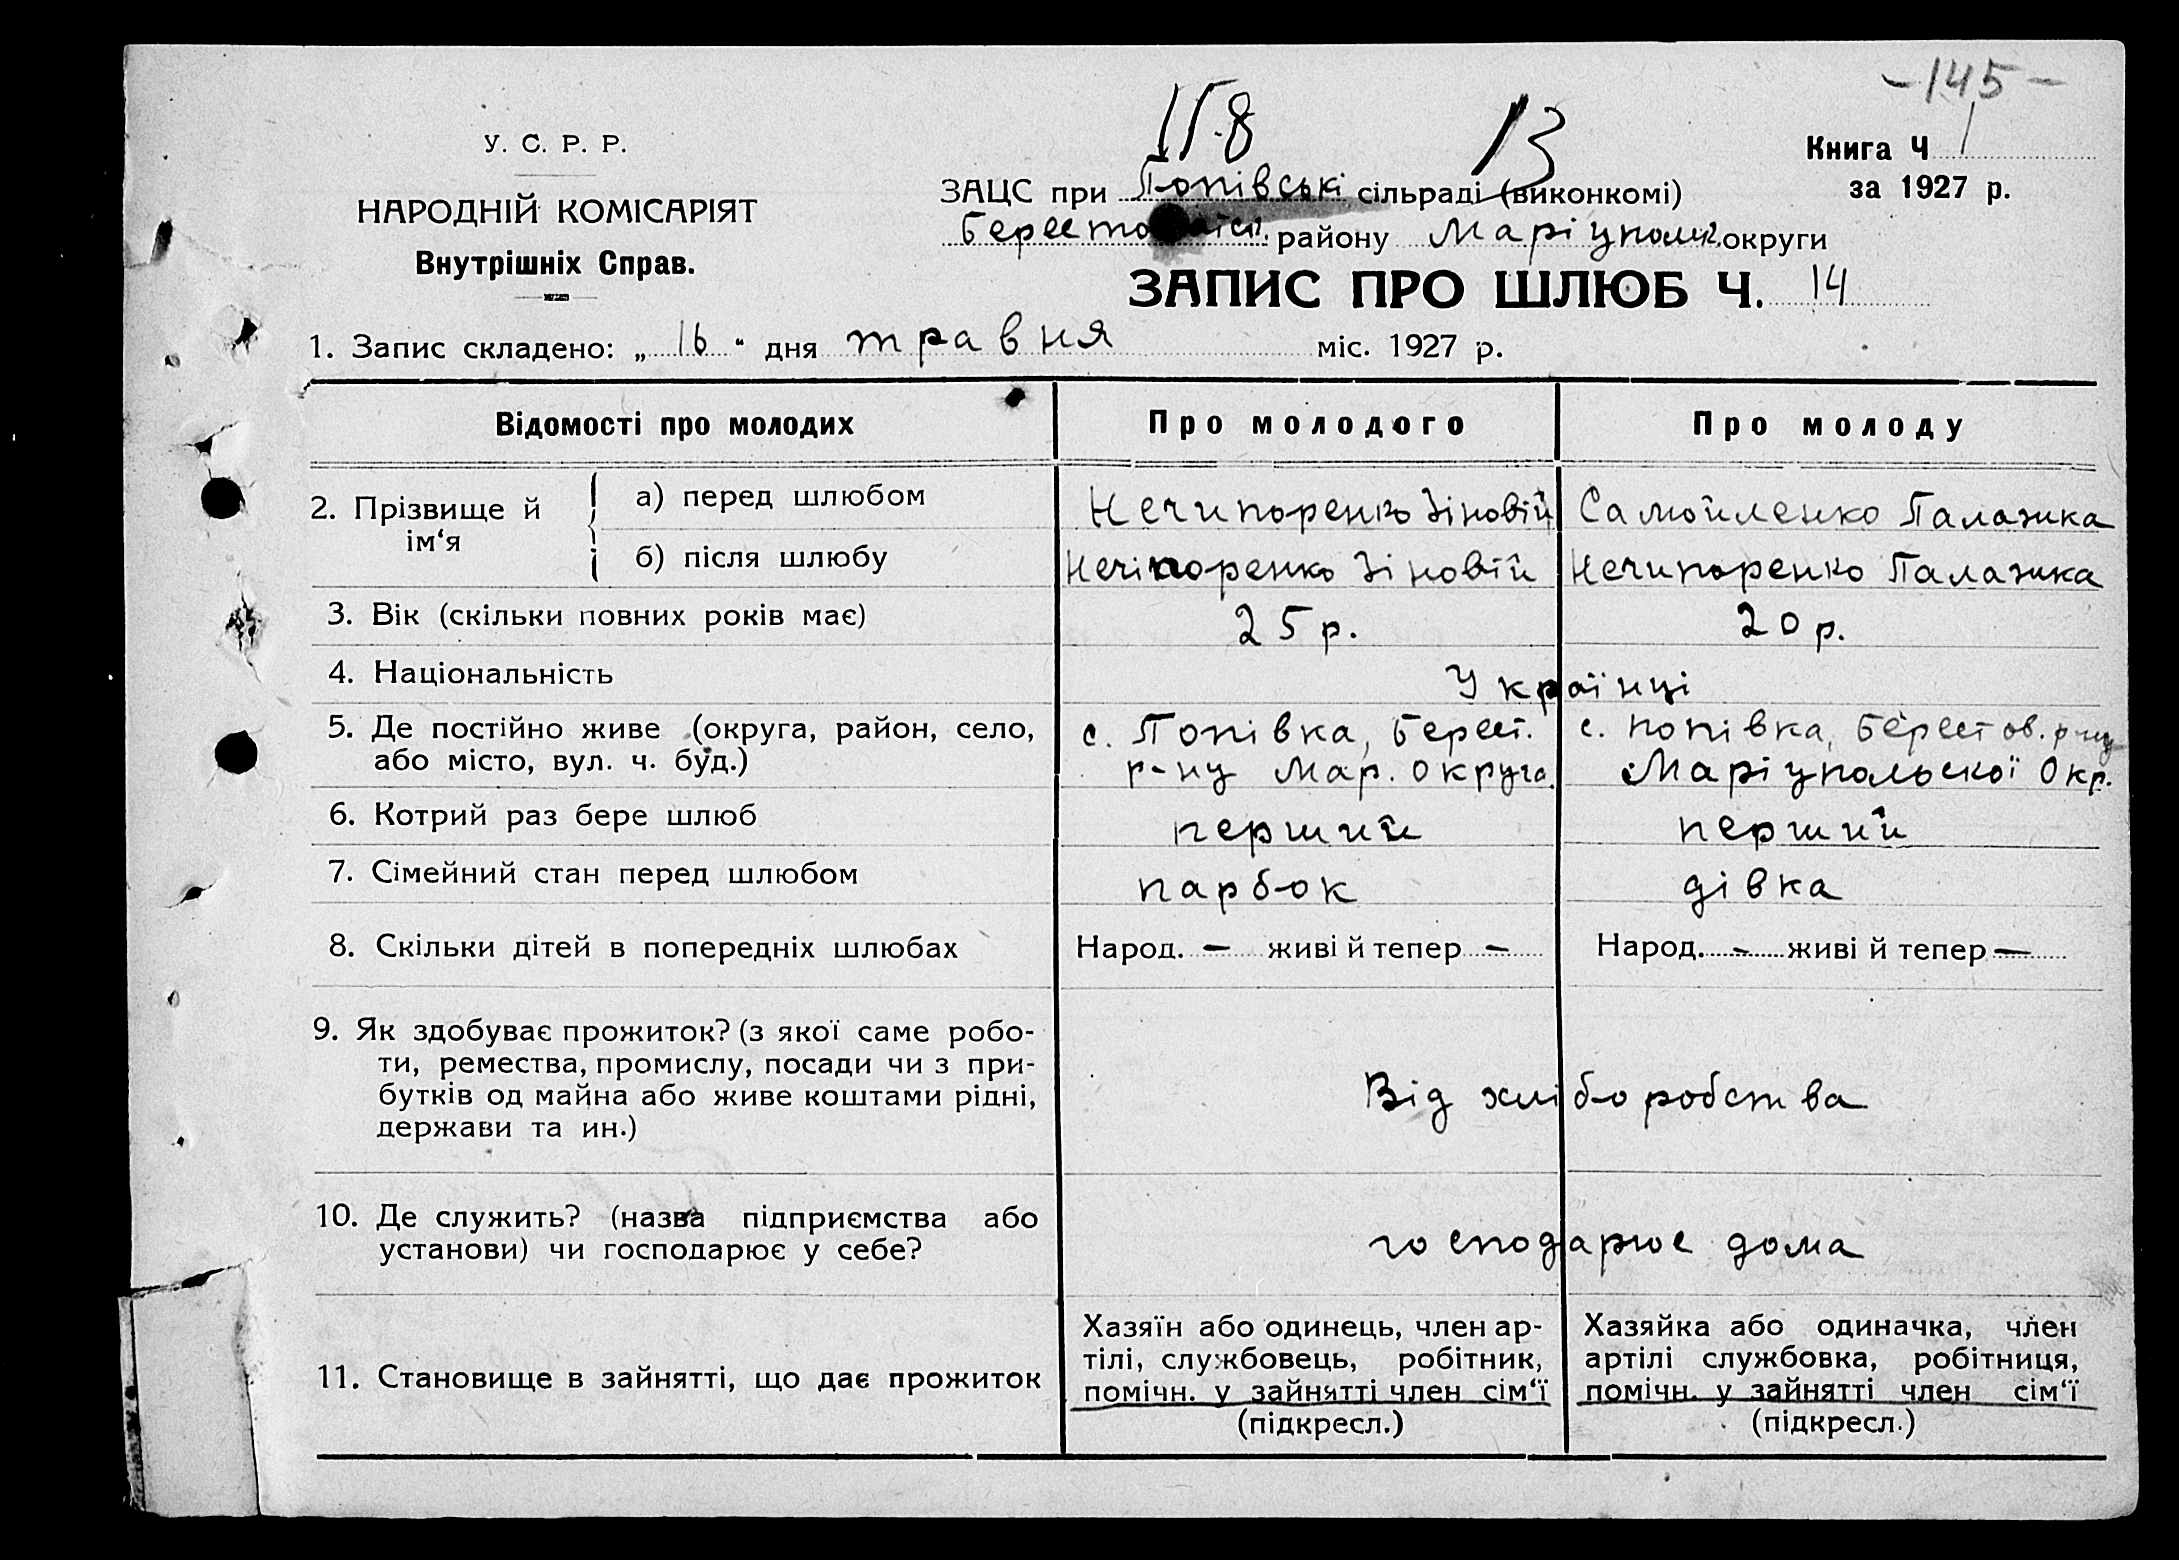 -145-
118 13
У. С. Р. Р.
НАРОДНІЙ КОМІСАРІЯТ
Внутрішніх Справ.
Книга Ч 1
за 1927 р.
ЗАЦС при Попівські сільраді (виконкомі)
району Маріупольс. округи
ЗАПИС ПРО ШЛЮБ Ч. 14
1. Запис складено: „ 16 “ дня травня міс. 1927 р.
Відомості про молодих Про молодого Про молоду
2. Прізвище й ім‘я
а) перед шлюбом Нечипоренко Зіновій Самойленко Палажка
б) після шлюбу Нечіпоренко Зіновій Нечипоренко Палажка
3. Вік (скільки повних років має) 25 р. 20 р.
4. Національність Українці
5. Де постійно живе (округа, район, село, с. Попівка, Берест. с. Попівка, Берестов. р-ну
або місто, вул. ч. буд.) р-ну Мар. округа. Маріупольської Окр.
6. Котрий раз бере шлюб перший перший
7. Сімейний стан перед шлюбом парбок дівка
8. Скільки дітей в попередніх шлюбах Народ. — живі й тепер — Народ. — живі й тепер —
9. Як здобуває прожиток? (з якої саме робо-
ти, ремества, промислу, посади чи з при-
бутків од майна або живе коштами рідні, Від хліборобства
держави та ин.)
10. Де служить? (назва підприємства або
установи) чи господарює у себе? господарює дома
11. Становище в зайнятті, що дає прожиток
Хазяїн або одинець, член ар-
тілі, службовець, робітник,
помічн. у зайнятті член сім‘ї
(підкресл.)
Хазяйка або одиначка, член
артілі службовка, робітниця,
помічн. у зайнятті член сім‘ї
(підкресл.)